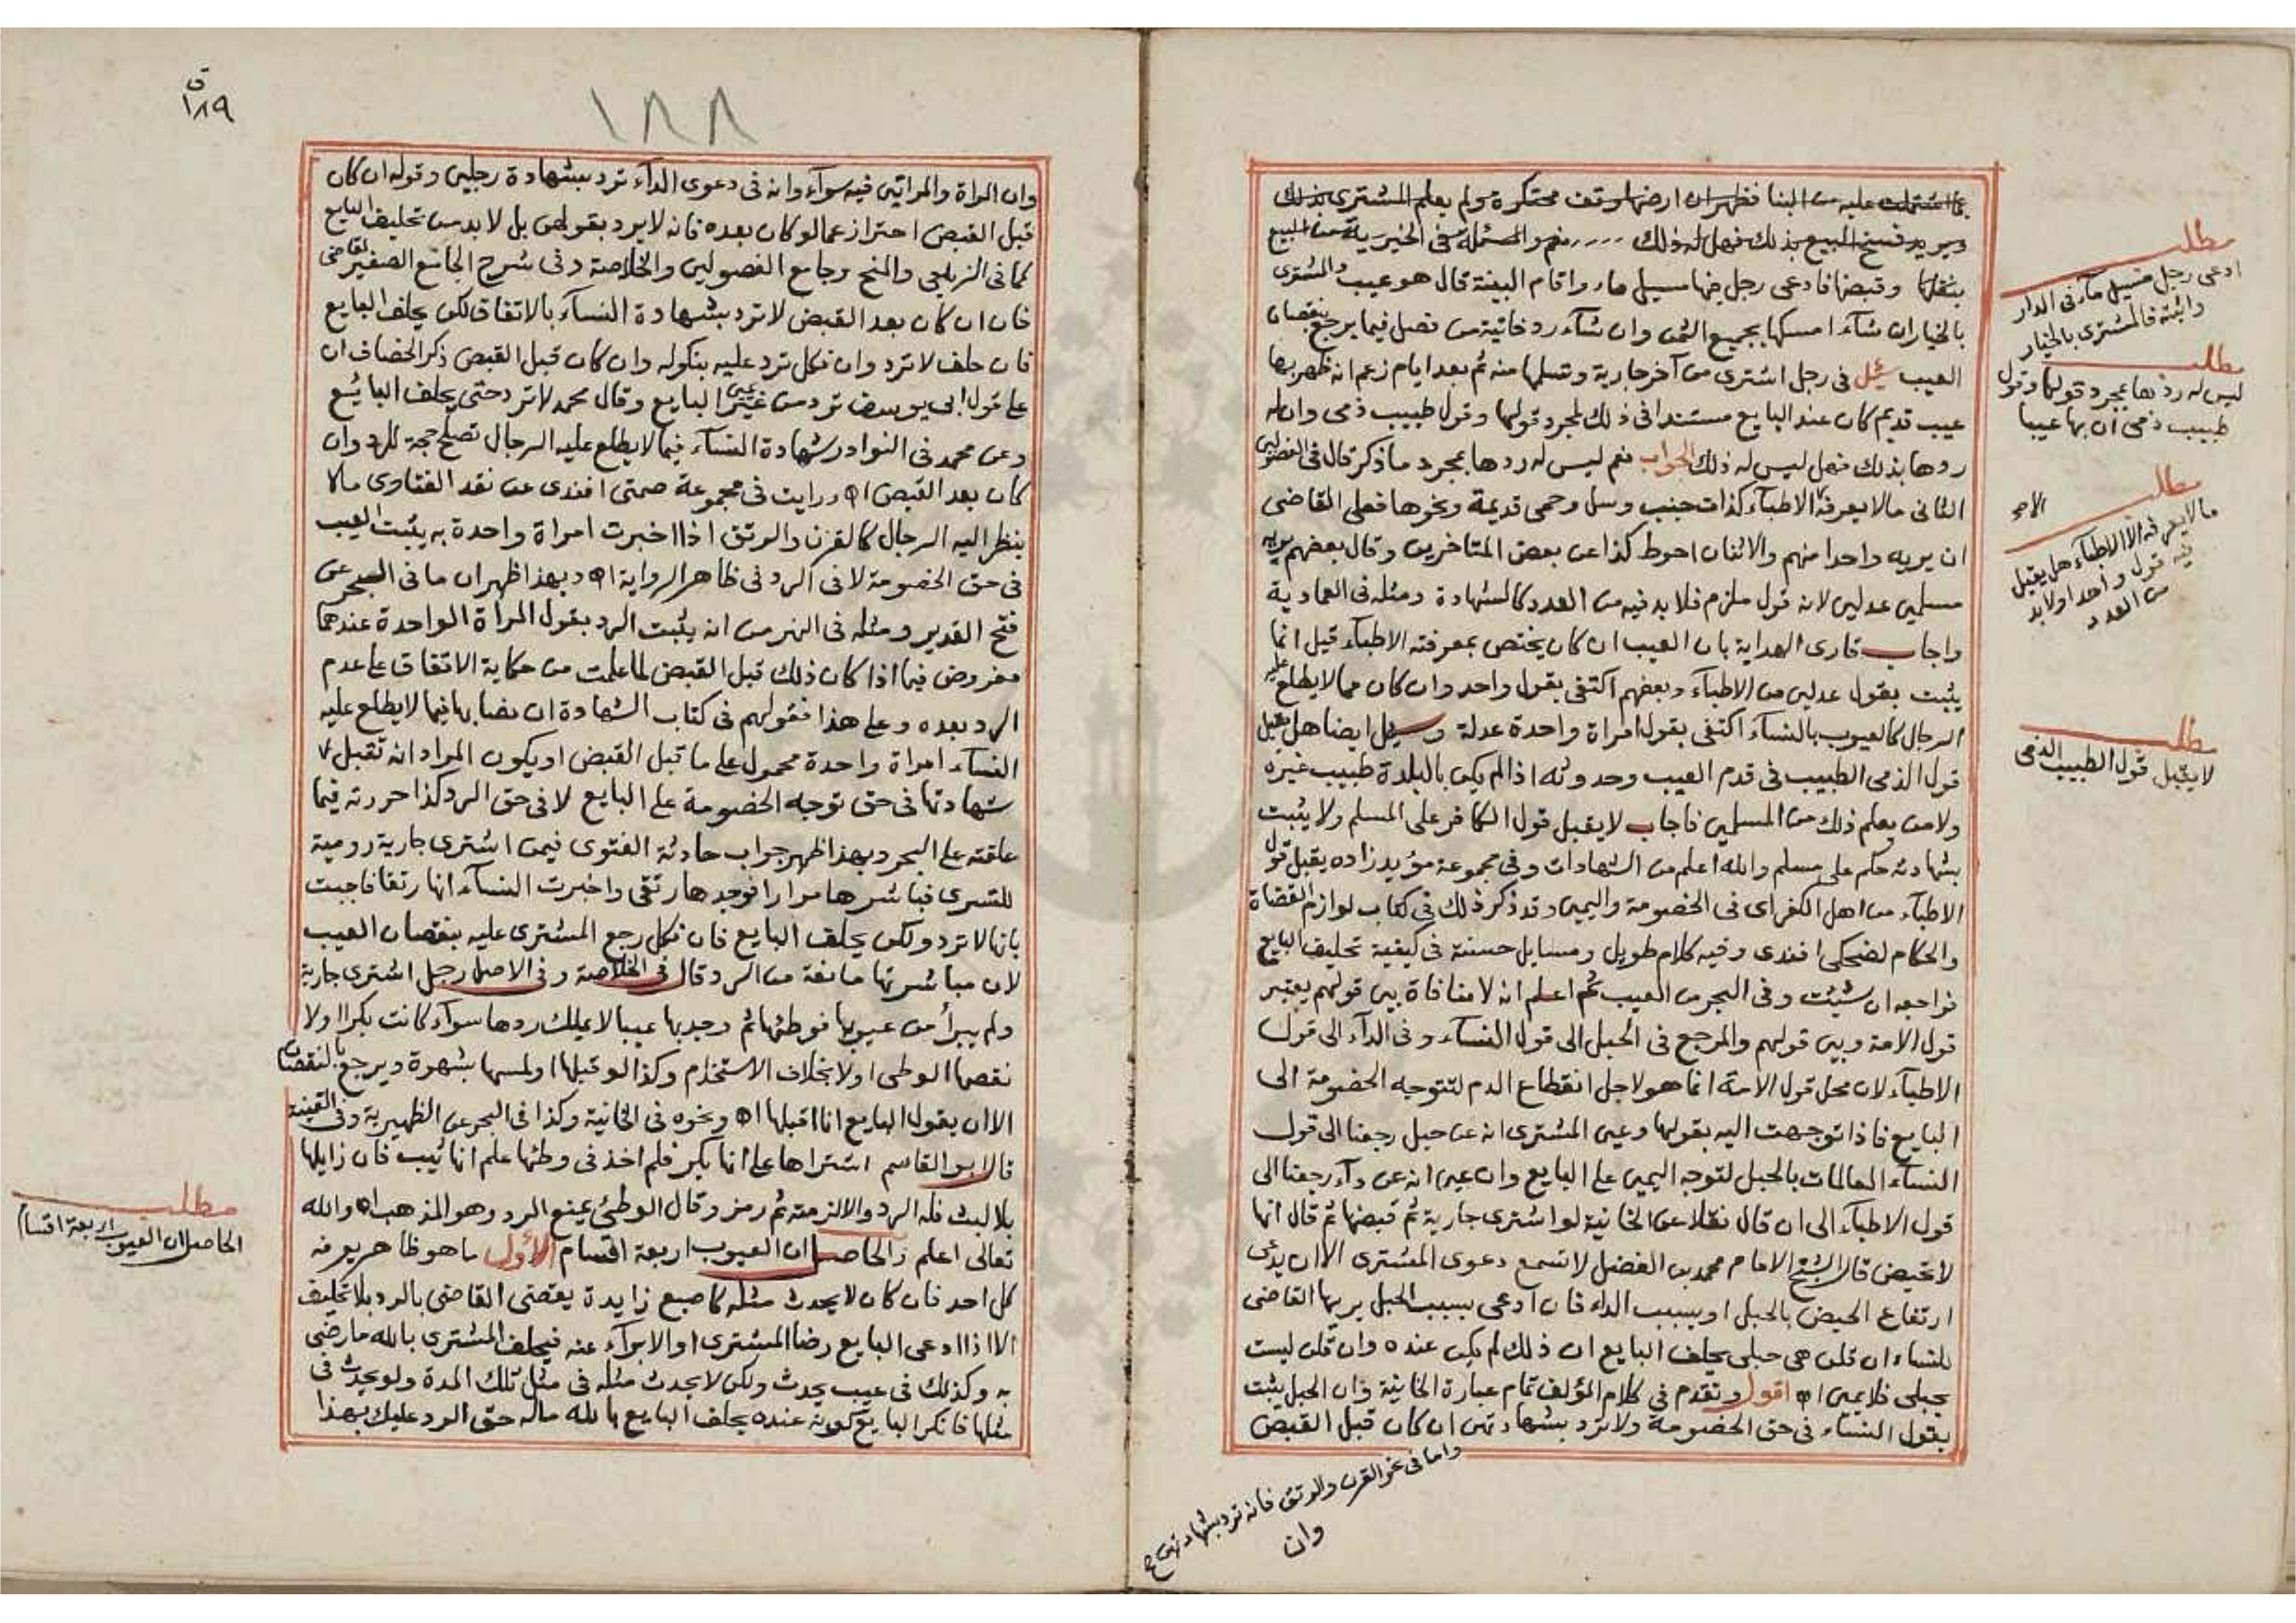 بما اشتملت عليه من البنا فظهر ان ارضها وقف محتكرة ولم يعلم المشترى بذلك
ويريد فسخ البيع بذلك فهل له ذلك .... نعم والمسئلة فى الخيرية من البيع
بثقلها وقبضها فادعى رجل فيها مسيل ماء واقام البينة قال هو عيب والمشترى
بالخيار ان شآء امسكها بجميع الثمن وان شآء رد خانية من فصل فيما يرجع بنقصان
العيب سئل فى رجل اشترى من آخر جارية وتسلمها منه ثم بعد ايام زعم انه ظهر بها
عيب قديم كان عند البايع مستندا فى ذلك لمجرد قولها وقول طبيب ذمى وان له
ردها بذلك فهل ليس له ذلك الجواب نعم ليس له ردها بمجرد ما ذكر قال فى الفصولين
الثانى مالا يعرفه الا الاطبآء كذات جنب وسل وحمى قديمة ونحوها فعلى القاضى
ان يريه واحدا منهم والاثنان احوط كذا عن بعض المتاخرين وقال بعضهم يريه
مسلمين عدلين لانه قول ملزم فلا بد فيه من العدد كالشهادة ومثله فى العمادية
واجاب قارى الهداية بان العيب ان كان يختص بمعرفته الاطبآء قيل انما
يثبت بقول عدلين من الاطبآء وبعضهم اكتفى بقول واحد وان كان مما لا يطلع عليه
الرجال كالعيوب بالنسآء اكتفى بقول امراة واحدة عدلة وسئل ايضا هل يقبل
قول الذمى الطبيب فى قدم العيب وحدوثه اذا لم يكن بالبلدة طبيب غيره
ولا من يعلم ذلك من المسلمين فاجاب لا يقبل قول الكافر على المسلم ولا يثبت
بشهادته حكم على مسلم والله اعلم من الشهادات وفى مجموعة مؤيد زاده يقبل قول
الاطبآء من اهل الكفر اى فى الخصومة واليمين وقد ذكر ذلك فى كتاب لوازم القضاة
والحكام لضحكى افندى وفيه كلام طويل ومسايل حسنة فى كيفية تحليف البايع
فراجعه ان شئت وفى البحر من العيب ثم اعلم انه لا منافاة بين قولهم يعتبر
قول الامة وبين قولهم والمرجع فى الحبل الى قول النسآء وفى الدآء الى قول
الاطبآء لان محل قول الامة انما هو لاجل انقطاع الدم لتتوجه الخصومة الى
البايع فاذا توجهت اليه بقولها وعين المشترى انه عن حبل رجعنا الى قول
النسآء العالمات بالحبل لتوجه اليمين على البايع وان عين انه عن دآء رجعنا الى
قول الاطبآء الى ان قال نقلا عن الخانية لو اشترى جارية ثم قبضها ثم قال انها
لا تحيض قال الشيخ الامام محمد بن الفضل لا تسمع دعوى المشترى الا ان يدعى
ارتفاع الحيض بالحبل او بسبب الداء فان ادعى بسبب الحبل يريها القاضى
للنساء ان قلن هى حبلى يحلف البايع ان ذلك لم يكن عنده وان قلن ليست
بحبلى فلا يمين اه اقول وتقدم فى كلام المؤلف تمام عبارة الخانية وان الحبل يثبت
بقول النساء فى حق الخصومة ولا ترد بشهادتهن ان كان قبل القبض
واما فى نحو القرن والرتق فانه ترد بشهادتهن
وان
مطلب
ادعى رجل مسيل مآء فى الدار
واثبته فالمشترى بالخيار
مطلب
ليس له ردها بمجرد قولها وقول
طبيب ذمى ان بها عيبا
مطلب
ما لا يعرفه الا الاطبآء هل يقبل
فيه قول واحد اولابد
من العدد
مطلب
لا يقبل قول الطبيب الذمى
ق
١٨٩
١٨٨
وان المراة والمراتين فيه سوآء وانه فى دعوى الدآء ترد بشهادة رجلين وقوله ان كان
قبل القبض احتراز عما لو كان بعده فانه لا يرد بقولهن بل لا بد من تحليف البايع
كما فى الزيلعى والمنح وجامع الفصولين والخلاصة وفى شرح الجامع الصغير لقاضى
خان ان كان بعد القبض لا ترد بشهادة النسآء بالاتفاق لكن يحلف البايع
فان حلف لا ترد وان نكل ترد عليه بنكوله وان كان قبل القبض ذكر الخصاف ان
على قول ابى يوسف ترد من غير يمين البايع وقال محمد لا ترد حتى يحلف البائع
وعن محمد فى النوادر شهادة النسآء فيما لا يطلع عليه الرجال تصلح حجة للرد وان
كان بعد القبض اه ورايت فى مجموعة صمتى افندى عن نقد الفتاوى مالا
ينظر اليه الرجال كالقرن والرتق اذا اخبرت امراة واحدة به يثبت العيب
فى حق الخصومة لا فى الرد فى ظاهر الرواية اه وبهذا ظهر ان ما فى البحر عن
فتح القدير ومثله فى النهر من انه يثبت الرد بقول المراة الواحدة عندهما
مفروض فيما اذا كان ذلك قبل القبض لما علمت من حكاية الاتفاق على عدم
الرد بعده وعلى هذا فقولهم فى كتاب الشهادة ان نصابها فيما لا يطلع عليه
النسآء امراة واحدة محمول على ما قبل القبض او يكون المراد انه تقبل
شهادتها فى حق توجه الخصومة على البايع لا فى حق الرد كذا حررته فيما
علقته على البحر وبهذا ظهر جواب حادثة الفتوى فيمن اشترى جارية رومية
للتسرى فباشرها مرارا فوجدها رتقى واخبرت النسآء انها رتقا فاجبت
بانها لا ترد ولكن يحلف البايع فان نكل رجع المشترى عليه بنقصان العيب
لان مباشرتها مانعة من الرد قال فى الخلاصة وفى الاصل رجل اشترى جارية
ولم يبرأ من عيوبها فوطئها ثم وجد بها عيبا لا يملك ردها سوآء كانت بكرا اولا
نقصها الوطى اولا بخلاف الاستخدام وكذا لو قبلها او لمسها بشهوة ويرجع بالنقصان
الا ان يقول البايع انا اقبلها اه ونحوه فى الخانية وكذا فى البحر عن الظهيرية وفى القنية
قال ابو القاسم اشتراها على انها بكر فلم اخذ فى وطئها علم انها ثيب فان زايلها
بلا لبث فله الرد والا لزمته ثم رمز وقال الوطئ يمنع الرد وهو المذهب اه والله
تعالى اعلم والحاصل ان العيوب اربعة اقسام الأول ما هو ظاهر يعرفه
كل احد فان كان لا يحدث مثله كاصبع زايدة يقضى القاضى بالرد بلا تحليف
الا اذا ادعى البايع رضا المشترى او الابرآء عنه فيحلف المشترى بالله ما رضى
به وكذلك فى عيب يحدث ولكن لا يحدث مثله فى مثل تلك المدة ولو يحدث فى
مثلها فانكر البايع كونه عنده يحلف البايع بالله ماله حق الرد عليك بهذا
مطلب
الحاصل ان العيوب اربعة اقسام